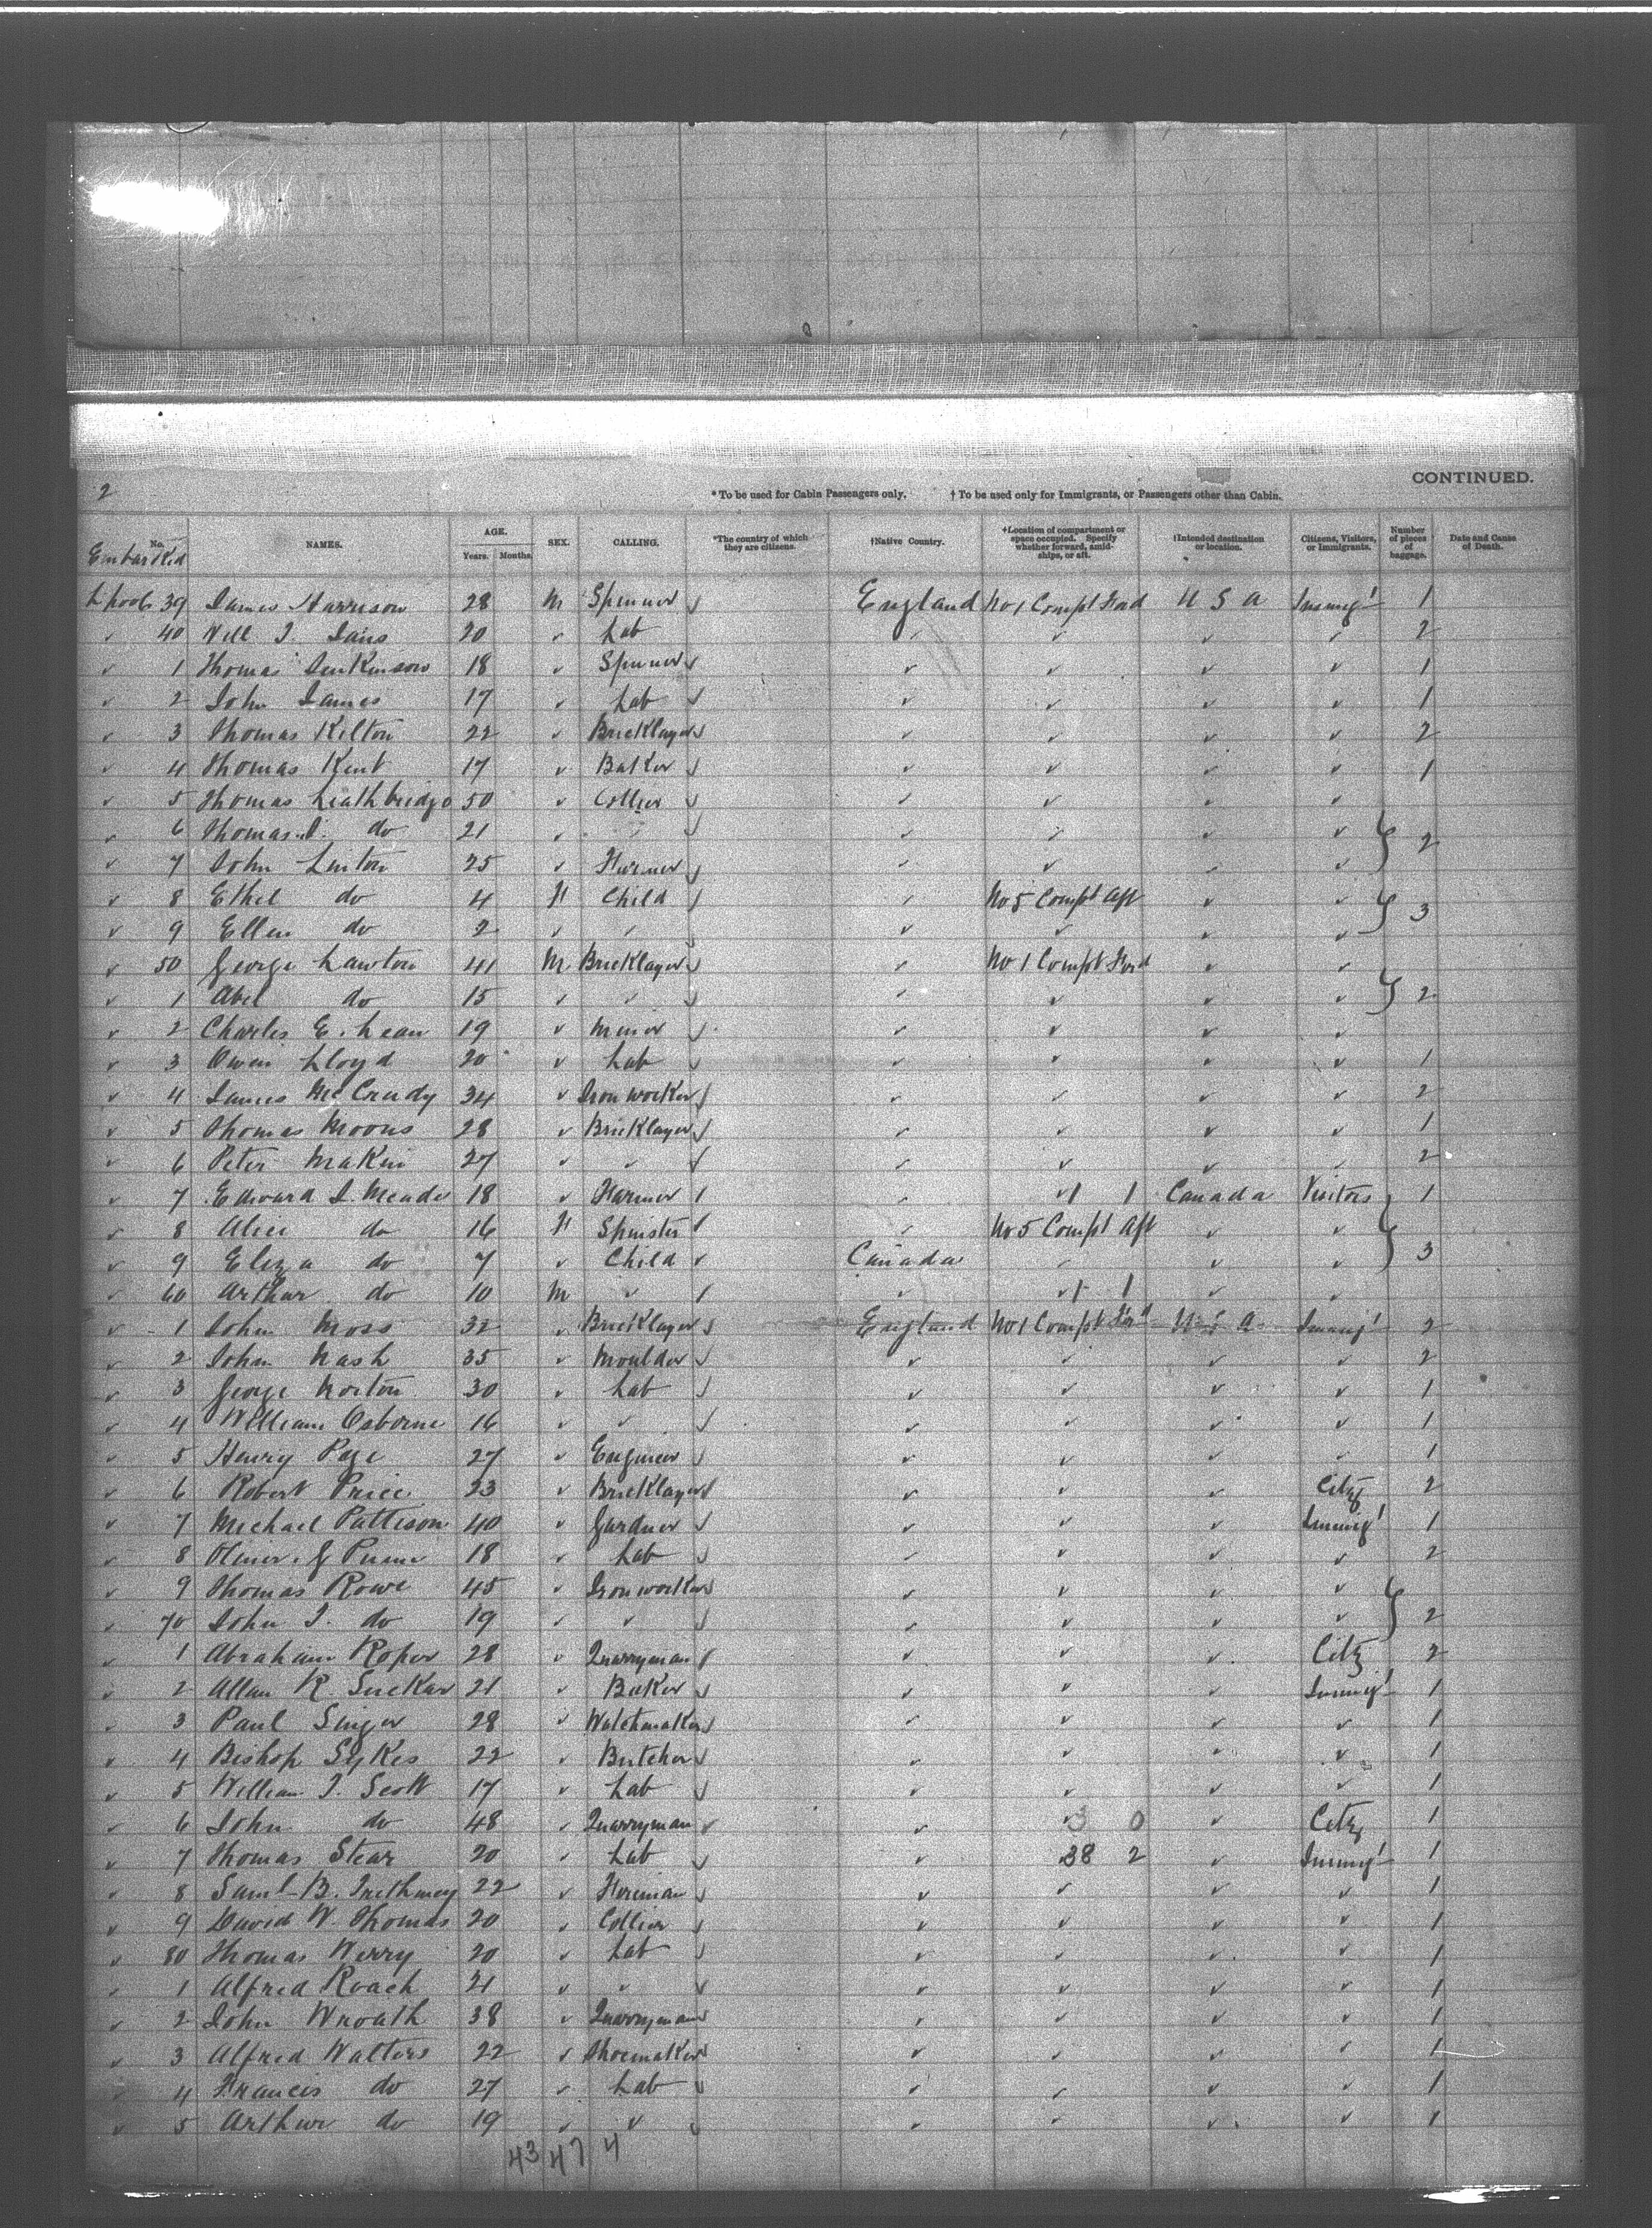 CONTINUED.
2 * To be used for Cabin Passengers only. † To be used only for Immigrants, or Passengers other than Cabin.
No. Embarked NAMES. AGE. Years. Months. SEX. CALLING. *The country of which they are citizens. †Native Country. †Location of compartment or space occupied. Specify whether forward, amidships, or aft. †Intended destination or location. Citizens, Visitors, or Immigrants. Number of pieces of baggage. Date and Cause of Death.
Lpool 39 James Harrison 28 M Spinner England No 1 Compt Ford U S A Immigt 1
40 Will J. 20 Lab 2
1 Thomas Jenkinson 18 Spinner 1
2 John James 17 Lab 1
3 Thomas Kilton 22 Bricklayer 2
4 Thomas Kent 17 Baker 1
5 Thomas Leathbridge 50 Collier
6 Thomas J. do 21 2
7 John Linton 25 Farmer
8 Ethel do 4 F Child No 5 Compt Aft 3
9 Ellen do 2
50 George Lawton 41 M Bricklayer No 1 Compt Ford
1 Abel do 15 2
2 Charles E. Lean 19 Miner
3 Owen Lloyd 20 Lab 1
4 James McCready 34 Ironworker 2
5 Thomas Moons 28 Bricklayer 1
6 Peter Makin 27 2
7 Edward J. Meade 18 Farmer 1 1 Canada Visitors 1
8 Alice do 16 F Spinster No 5 Compt Aft
9 Eliza do 7 Child Canada 3
60 Arthur do 10 M 1 1
1 John Moss 32 Bricklayer England No 1 Compt Ford U S A Immigt 2
2 John Nash 35 Moulder 2
3 George Norton 30 Lab 1
4 William Osborne 16 1
5 Henry Page 27 Engineer 1
6 Robert Price 23 Bricklayer Citz 2
7 Michael Pattison 40 Gardner Immigt 1
8 Oliver G 18 Lab 2
9 Thomas Rowe 45 Ironworker
70 John J. do 19 2
1 Abraham Roper 28 Quarryman Citz 2
2 Allan R. 21 Baker Immigt 1
3 Paul Singer 28 Watchmaker 1
4 Bishop Sykes 22 Butcher 1
5 William J. Scott 17 Lab 1
6 John do 48 Quarryman 3 0 Citz 1
7 Thomas Stear 20 Lab 38 2 Immigt 1
8 Saml B. Trethewey 22 Fireman 1
9 David W. Thomas 20 Collier 1
80 Thomas Werry 20 Lab 1
1 Alfred Roach 21 1
2 John Wroath 38 Quarryman 1
3 Alfred Walters 22 Shoemaker 1
4 Francis do 27 Lab 1
5 Arthur do 19 1
43 47 4